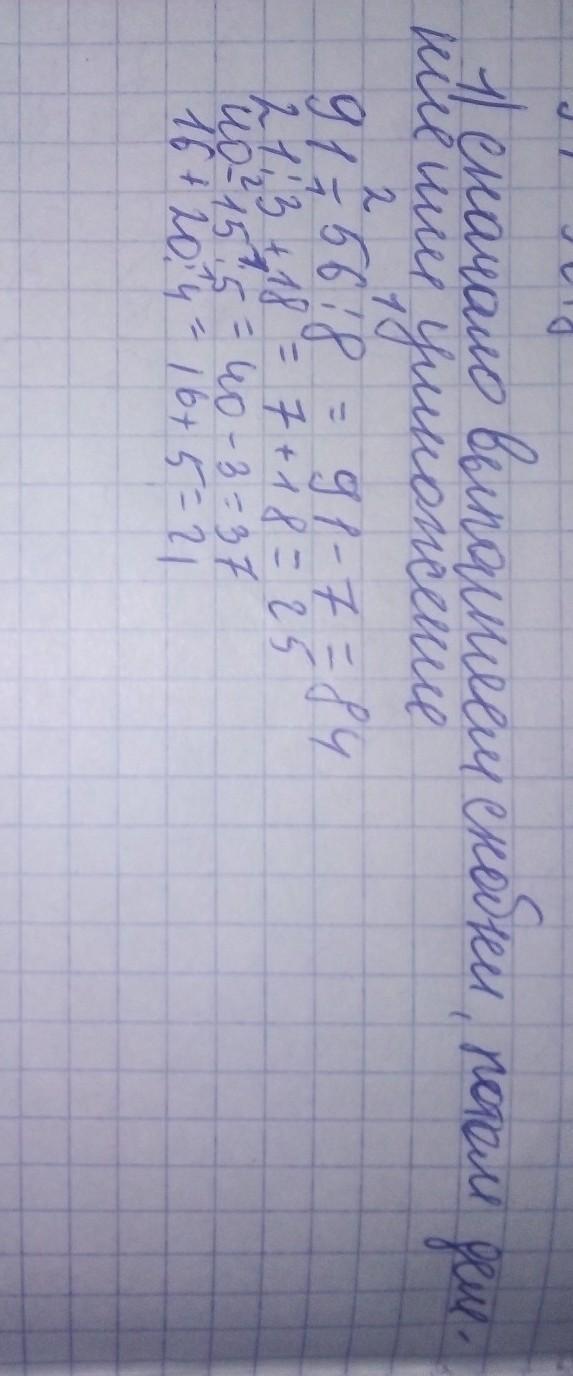 1) сначало выполняем скобки, потом деле-
ние или умножение
2 1
91 - 56 : 8 = 91 - 7 = 84
1 2
21 : 3 + 18 = 7 + 18 = 25
2 1
40 - 15 : 5 = 40 - 3 = 37
1
16 + 20 : 4 = 16 + 5 = 21